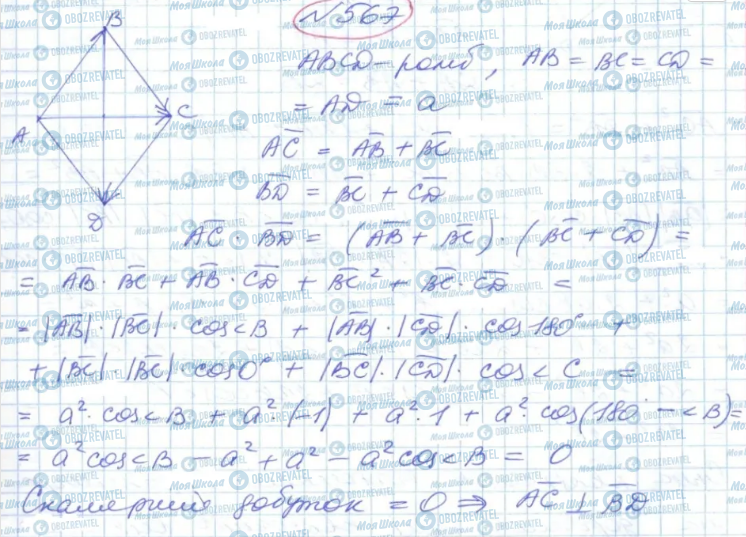 № 567
B
A
C
D
ABCD – ромб, AB = BC = CD =
= AD = a
A̅C̅ = A̅B̅ + B̅C̅
B̅D̅ = B̅C̅ + C̅D̅
A̅C̅ · B̅D̅ = (A̅B̅ + BC) · (B̅C̅ + C̅D̅) =
= A̅B̅ · B̅C̅ + A̅B̅ · C̅D̅ + B̅C̅² + B̅C̅ · C̅D̅ =
= |A̅B̅| · |B̅C̅| · cos<B + |A̅B̅| · |C̅D̅| · cos 180° +
+ |B̅C̅| · |B̅C̅| · cos0° + |B̅C̅| · |C̅D̅| · cos < C =
= a² · cos<B + a² · (-1) + a² · 1 + a² · cos(180° - <B) =
= a² cos<B - a² + a² - a² cos<B = 0
Скалярний добуток = 0 ⇒ A̅C̅ ⊥ B̅D̅
Моя Школа
OBOZREVATEL